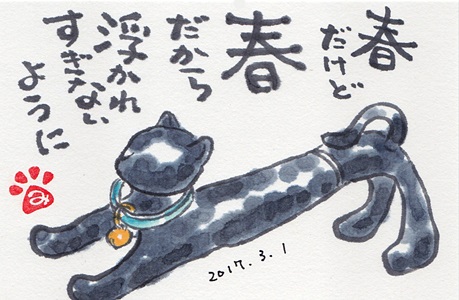 春
だけど
春
だから
浮かれ
すぎない
ように
み
2017.3.1